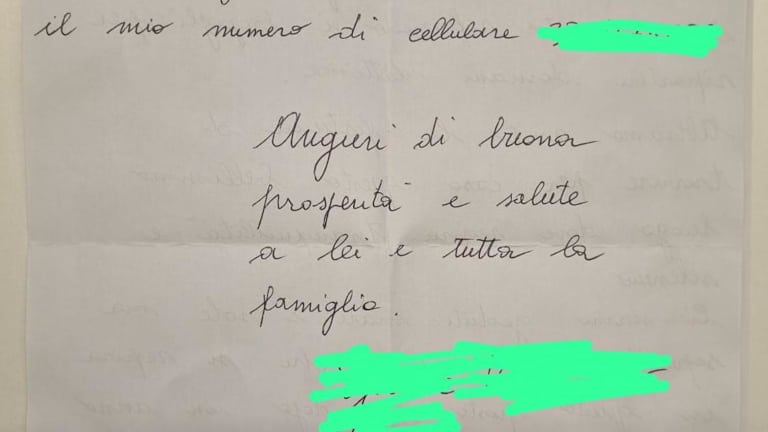 il mio numero di cellulare
Auguri di buona
prosperità e salute
a lei e tutta la
famiglia.